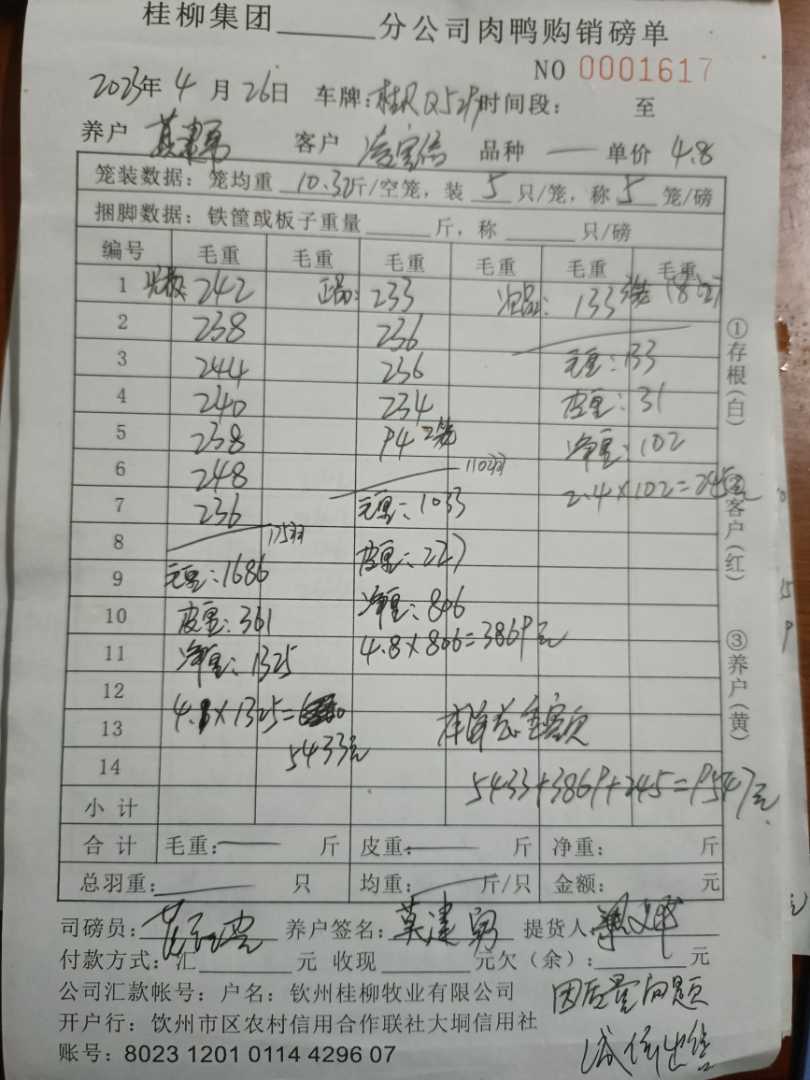 桂柳集团______分公司肉鸭购销磅单
NO 0001617
2023年 4 月 26日 车牌: 时间段: 至
养户 莫建勇 客户 品种 — 单价 4.8
笼装数据: 笼均重 10.32斤/空笼, 装 5 只/笼, 称 5 笼/磅
捆脚数据: 铁筐或板子重量______斤, 称______只/磅
编号 毛重 毛重 毛重 毛重 毛重 毛重
1 242 正品: 233 133
2 238 236
3 244 236 毛重: 133
4 240 234 皮重: 31
5 238 94 2笼 净重: 102
6 248 110羽 2.4×102=245元
7 236 毛重: 1033
8 175羽 皮重: 227
9 毛重: 1686 净重: 806
10 皮重: 361 4.8×806=3869元
11 净重: 1325
12 4.1×1325=
13 5433元 总金额
14 5433+3869+245=9547元
小计
合计 毛重: 斤 皮重: 斤 净重: 斤
总羽重: 只 均重: 斤/只 金额: 元
司磅员: 养户签名: 莫建勇 提货人:
付款方式: 汇______元 收现______元欠(余):______元
公司汇款帐号: 户名: 钦州桂柳牧业有限公司
因质量问题
开户行: 钦州市区农村信用合作联社大垌信用社
减价出售
账号: 8023 1201 0114 4296 07
①存根(白)
②客户(红)
③养户(黄)